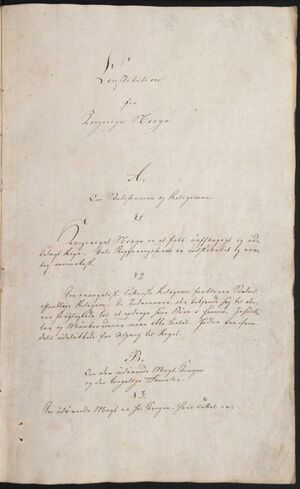 Constitution
for
Kongeriget Norge.
A.
Om Statsformen og Religionen.
§1
Kongeriget Norge er et frit, uafhængigt og ude-
leligt Rige. Dets Regjeringsform er indskrænket og arve-
lig monarkisk.
§2.
Den evangelisk-lutterske Religion forbliver Statens
offentlige Religion. De Indvaanere, der bekjende sig til den-
ne, ere forpligtede til at opdrage sine Børn i samme. Jesuit-
ter og Munkeordener maae ikke taales. Jøder ere frem-
deles udelukkede fra Adgang til Riget.
B.
Om den udøvende Magt, Kongen
og den kongelige Familie.
§3.
Den udøvende Magt er hos Kongen. Hans Tittel er: